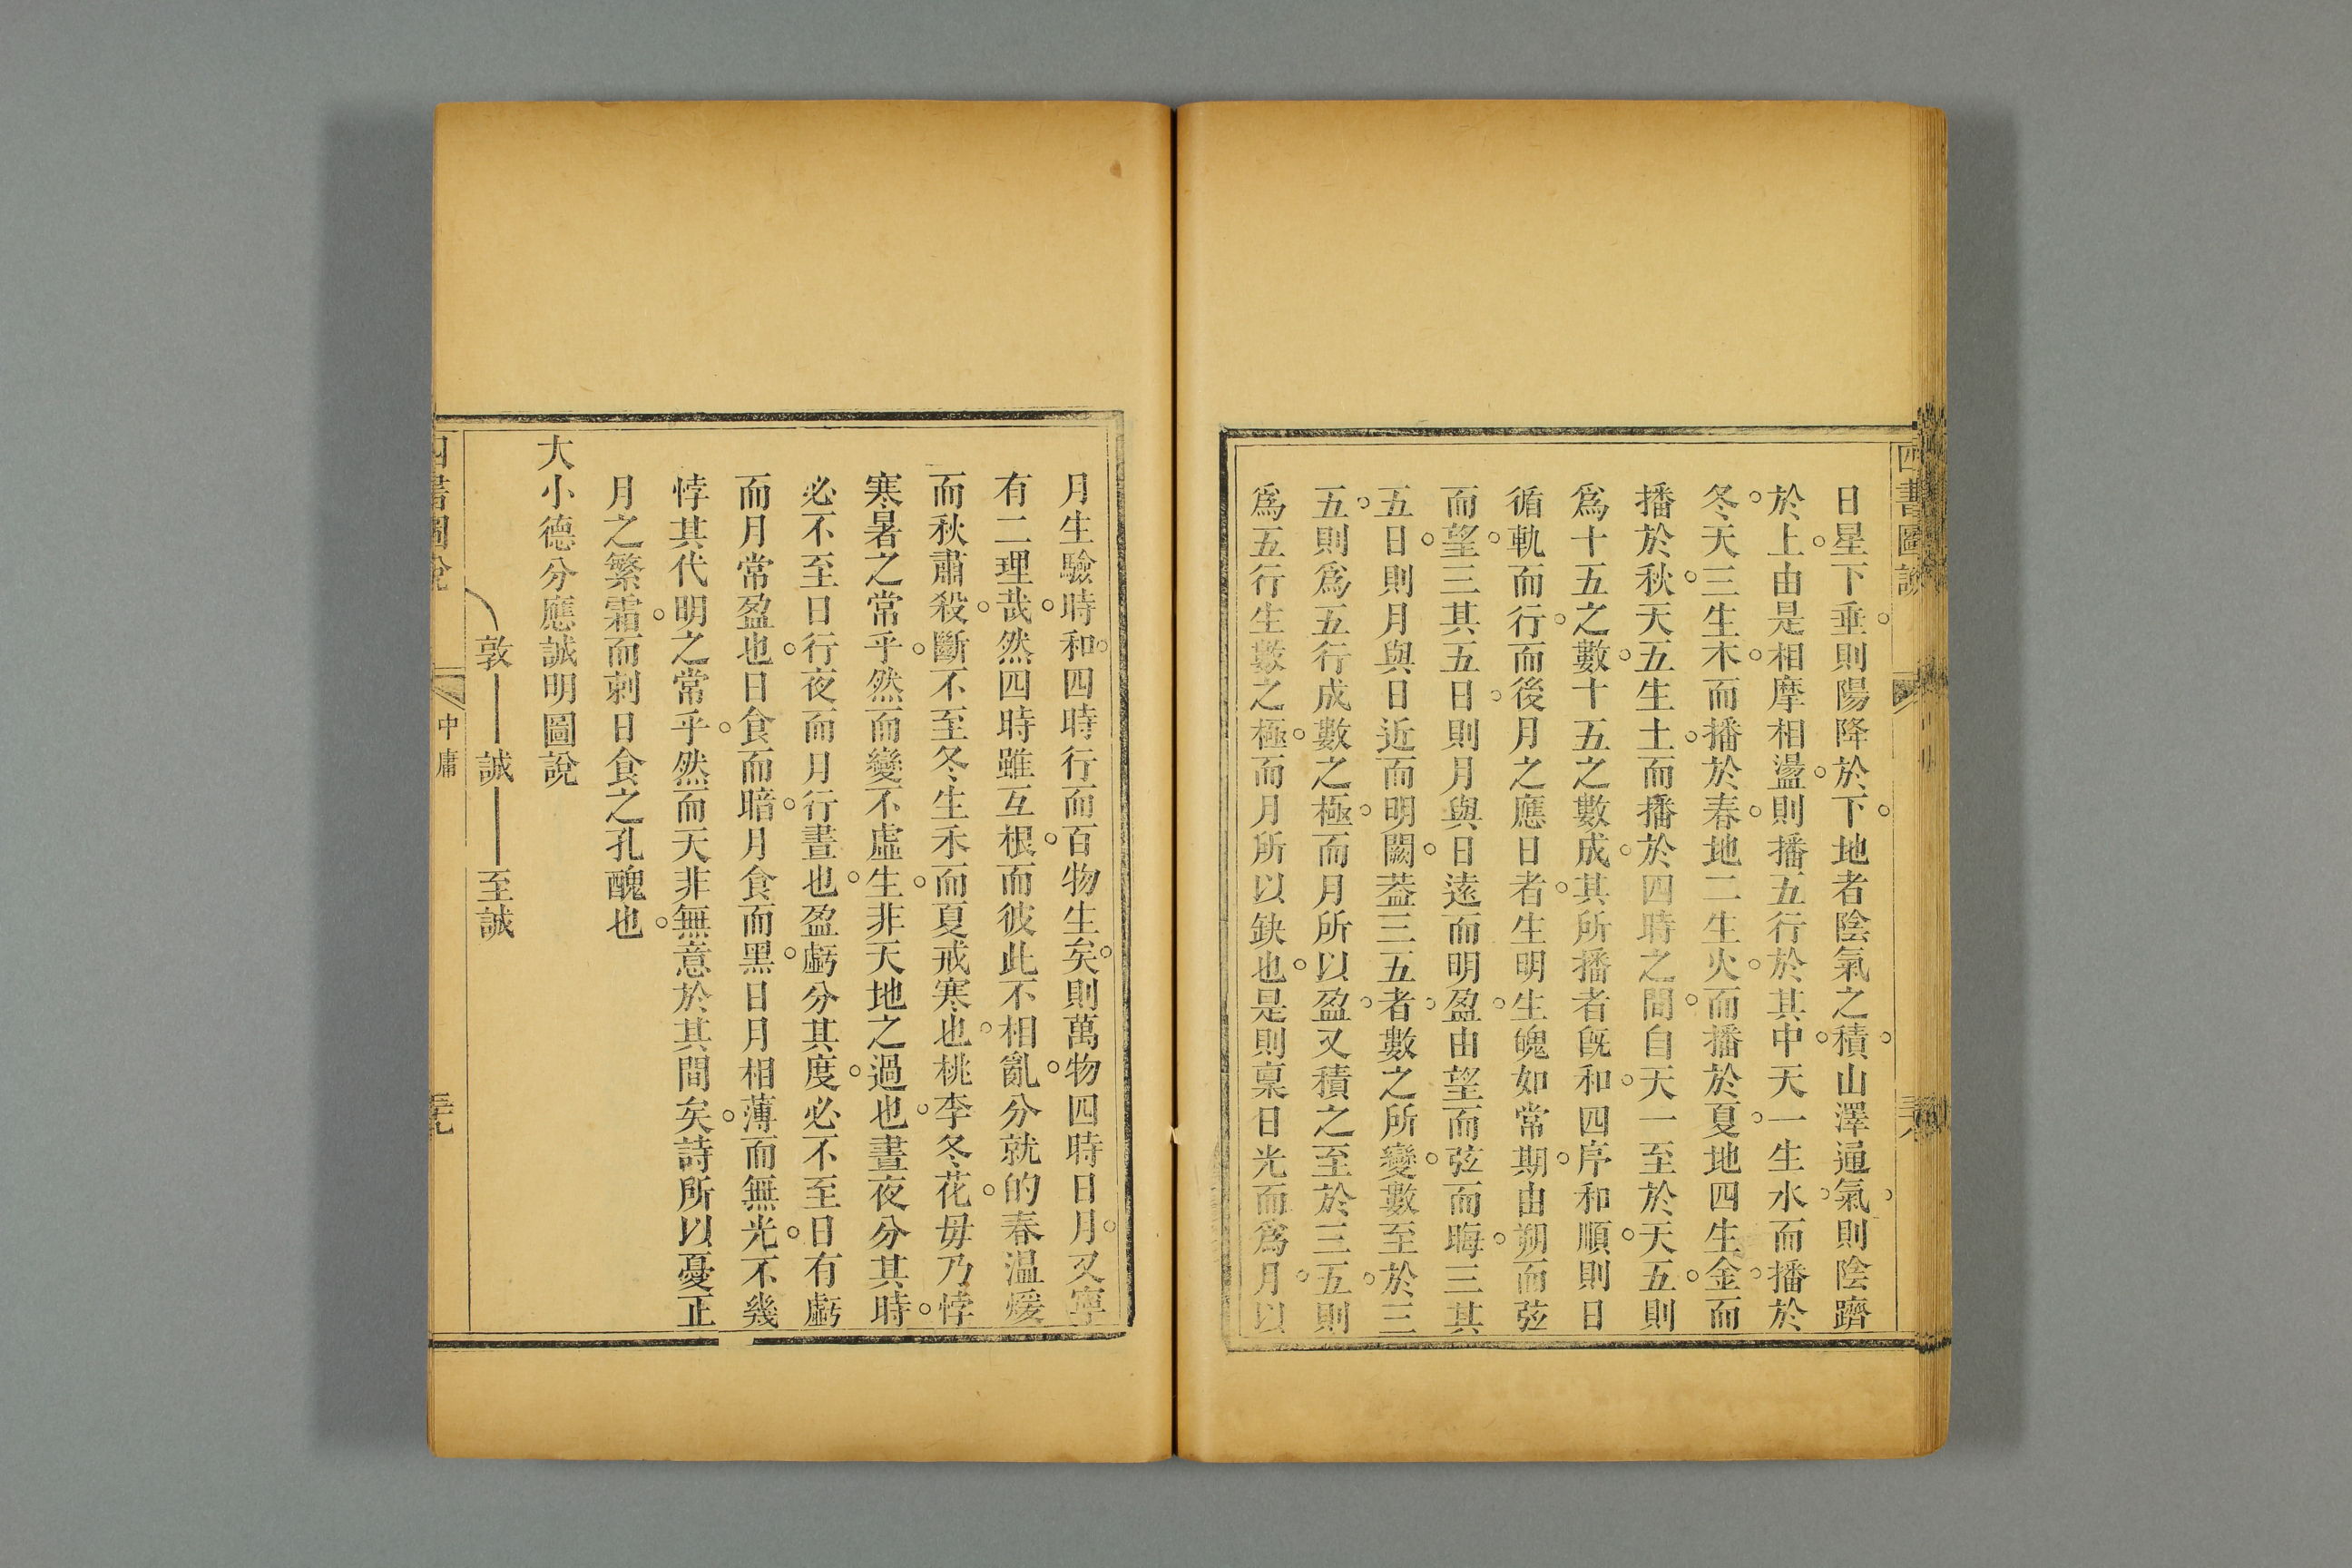 四書圖說
日星下垂則陽降於下地者陰氣之積山澤通氣則陰躋
於上由是相摩相盪則播五行於其中天一生水而播於
冬天三生木而播於春地二生火而播於夏地四生金而
播於秋天五生土而播於四時之間自天一至於天五則
爲十五之數十五之數成其所播者旣和四序和順則日
循軌而行而後月之應日者生明生魄如常期由朔而弦
而望三其五日則月與日遠而明盈由望而弦而晦三其
五日則月與日近而明闕葢三五者數之所變數至於三
五則爲五行成數之極而月所以盈又積之至於三五則
爲五行生數之極而月所以缺也是則稟日光而爲月以
月生驗時和四時行而百物生矣則萬物四時日月又寧
有二理哉然四時雖互根而彼此不相亂分就的春温煖
而秋肅殺斷不至冬生禾而夏戒寒也桃李冬花毋乃悖
寒暑之常乎然而變不虛生非天地之過也晝夜分其時
必不至日行夜而月行晝也盈虧分其度必不至日有虧
而月常盈也日食而暗月食而黑日月相薄而無光不幾
悖其代明之常乎然而天非無意於其間矣詩所以憂正
月之繁霜而刺日食之孔醜也
大小德分應誠明圖說
敦 誠 至誠
四書圖說 中庸 三十九